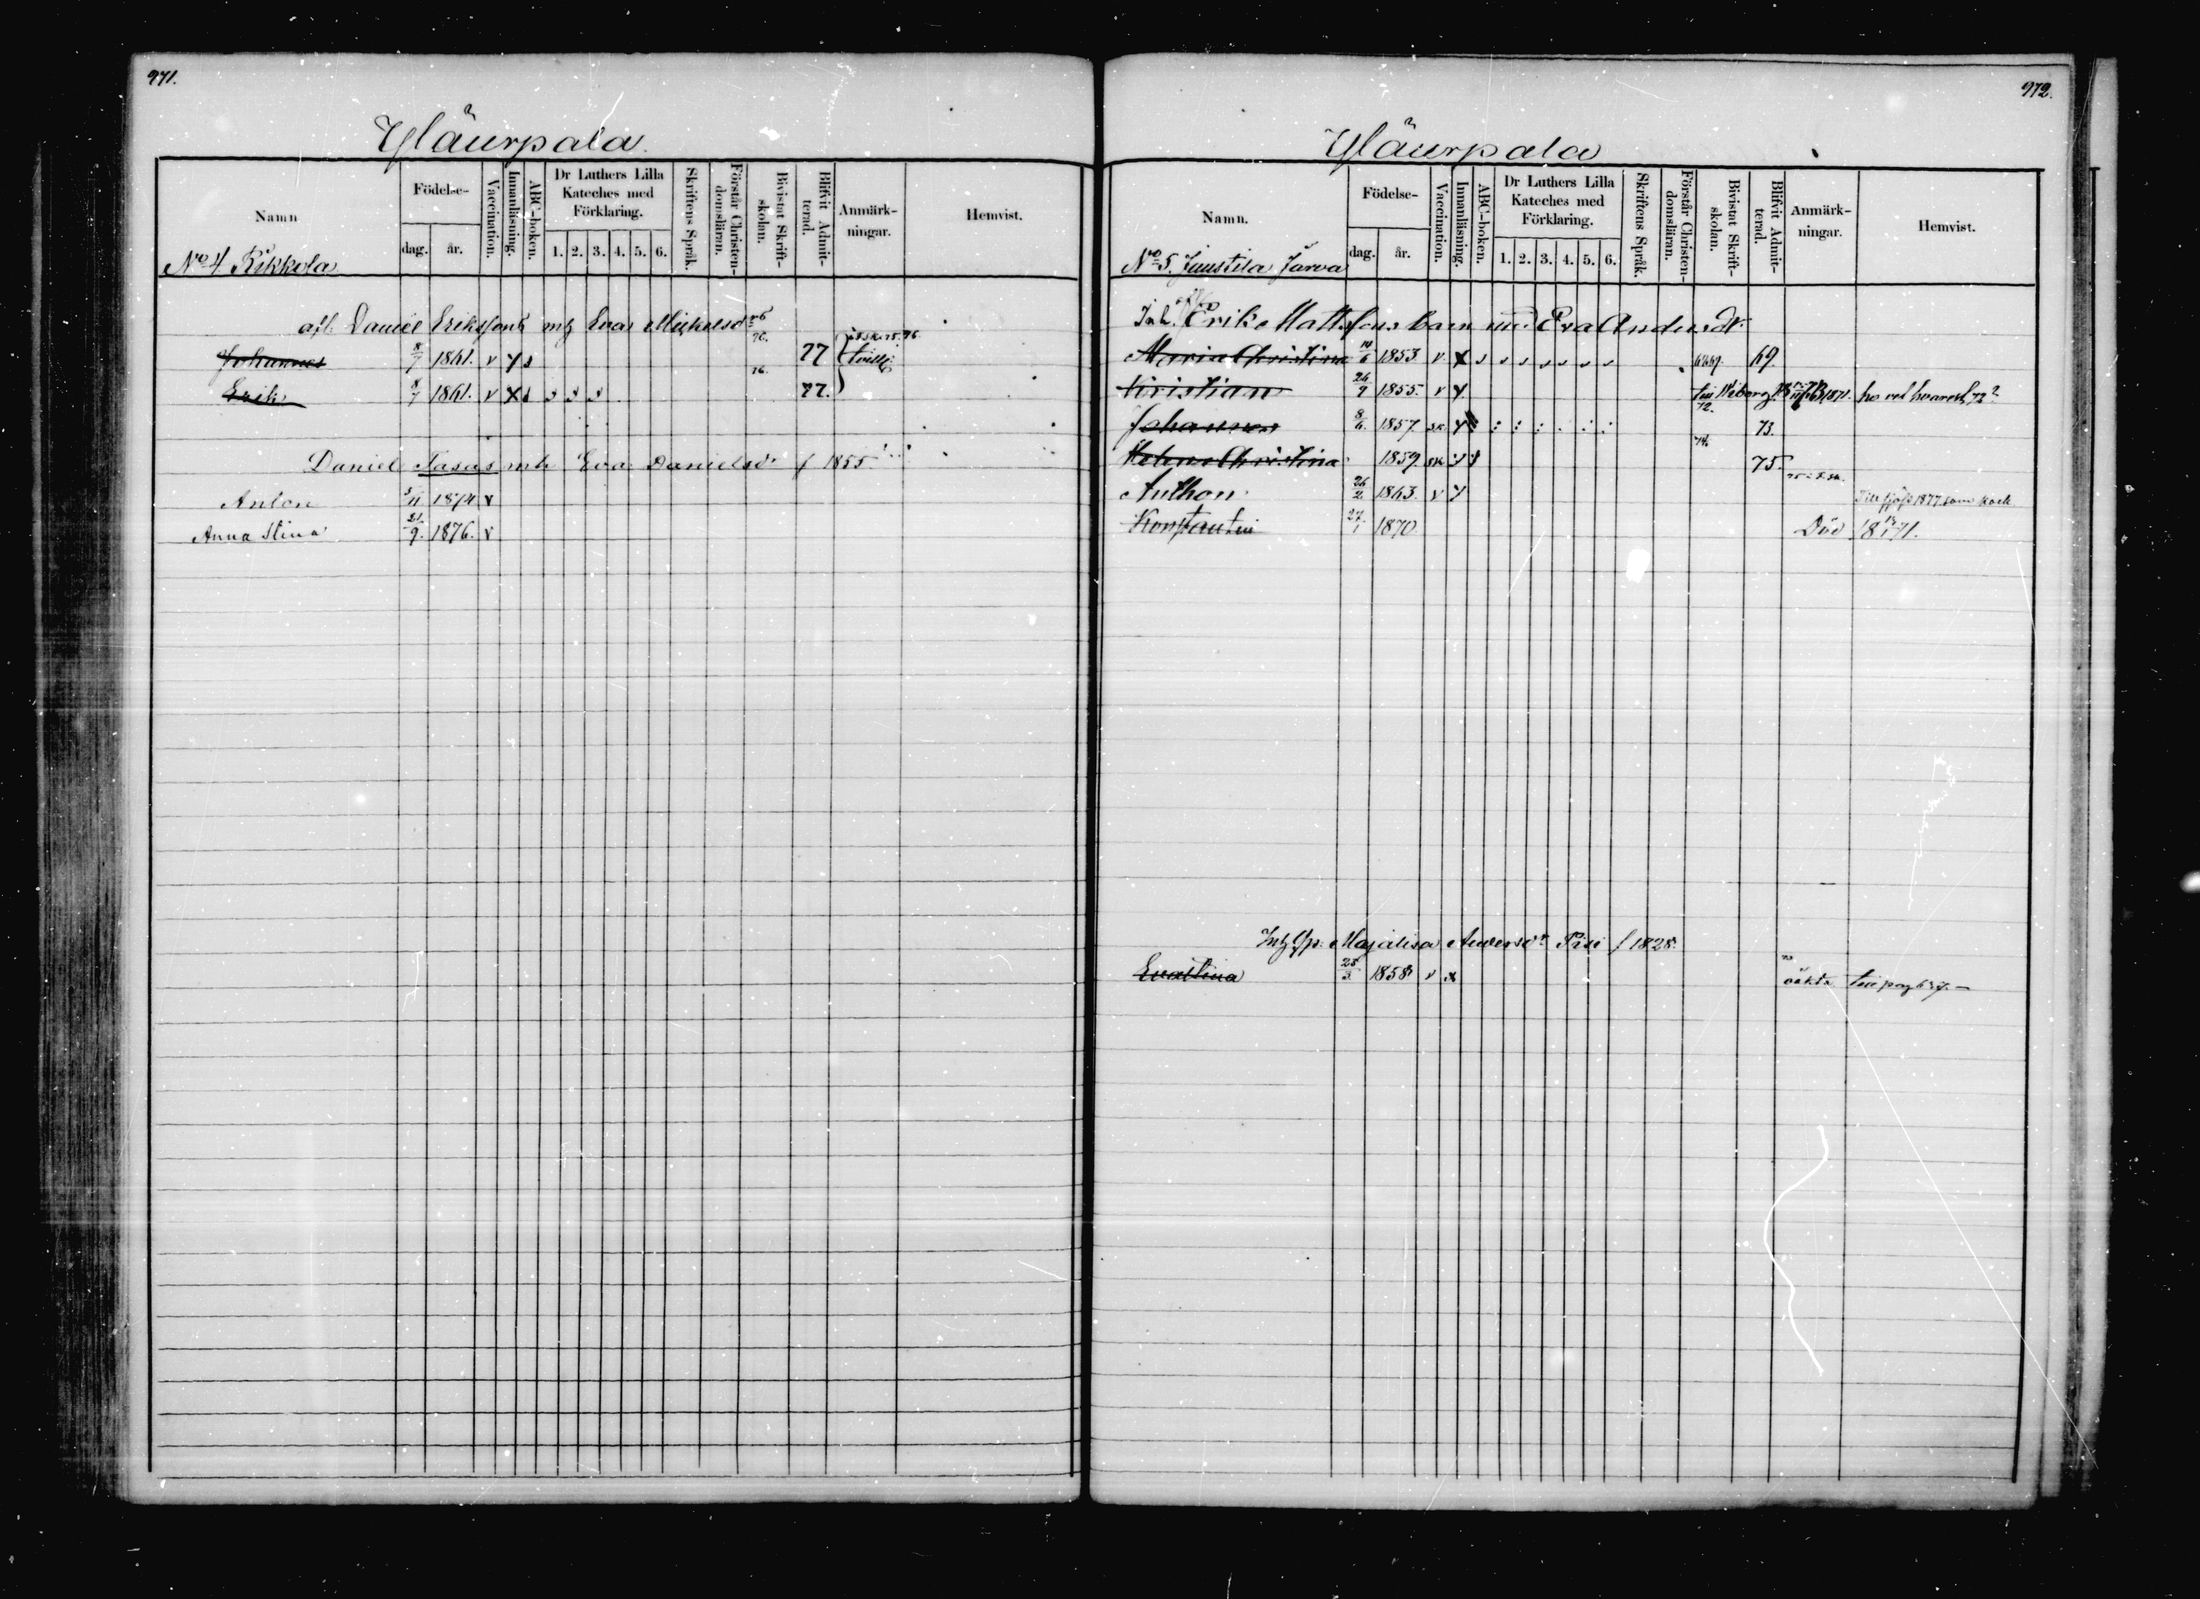 971.
Yläurpala
Namn
Födelse-
dag.
år.
Vaccination.
Innanläsning.
ABC-boken.
Dr Luthers Lilla
Kateches med
Förklaring.
1. 2. 3. 4. 5. 6.
Skriftens Språk.
Förstår Christen-
domsläran.
Bivistat Skrift-
skolan.
Blifvit Admit-
terad.
Anmärk-
ningar.
Hemvist.
No 4 Kikkola
afl. Daniel Eriksson mh Eva Mickelsdr
Johannes 8/7 1861. v 77
Erik 8/7 1861. v x 77.
Daniel Tasas mh Eva Danielsdr f 1855
Anton 5/11 1874. v
Anna Stina 21/9. 1876. v
972.
Yläurpala
Namn.
Födelse-
dag.
år.
Vaccination.
Innanläsning.
ABC-boken.
Dr Luthers Lilla
Kateches med
Förklaring.
1. 2. 3. 4. 5. 6.
Skriftens Språk.
Förstår Christen-
domsläran.
Bivistat Skrift-
skolan.
Blifvit Admit-
terad.
Anmärk-
ningar.
Hemvist.
No 5. Juustila Järva
Inh. Erik Mattssons barn med Eva Andersdr.
Maria Christina 14/6 1853. v x 69.
Kristian 26/9 1855. v 1871.
Johannes 8/6. 1857. 73.
Helena Christina 1859. 75.
Anthon 26/2 1863. v
Till sjöss 1877 som kock
Konstantin 27/1 1870. Död 18 71.
Majalisa Andersdr Piri f 1828.
Evastina 28/3. 1858. v x oäkta